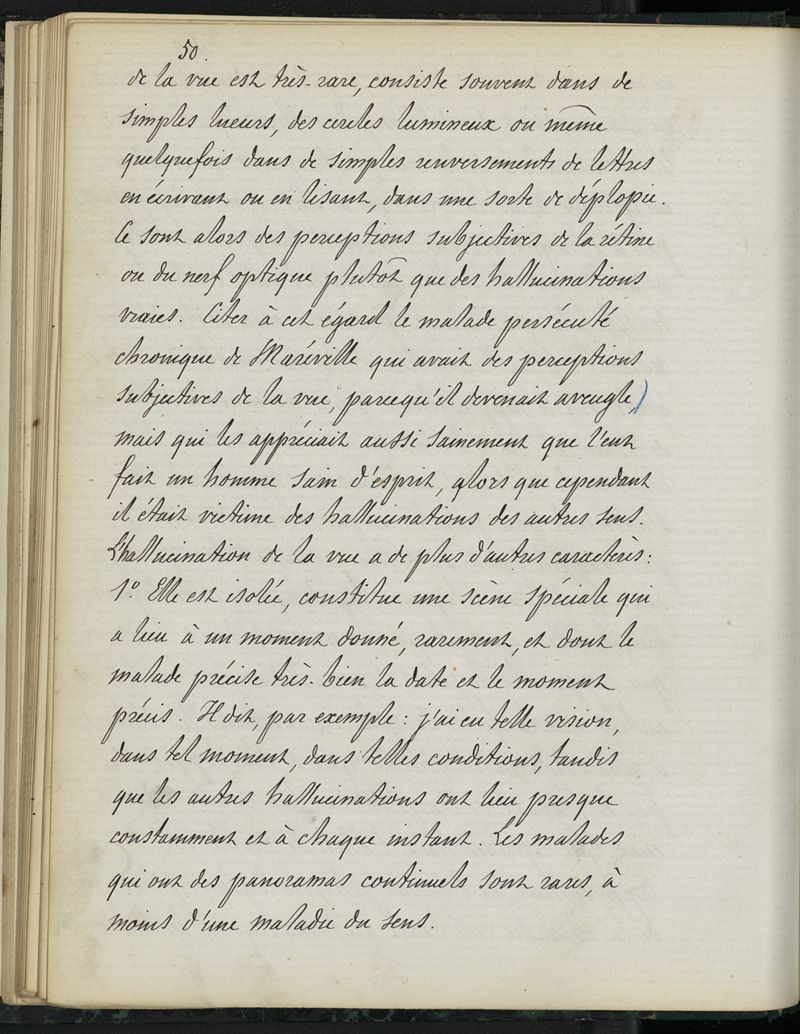 50.
de la vue est très-rare, consiste souvent dans de
simples lueurs, des cercles lumineux ou même
quelquefois dans de simples renversements de lettres
en écrivant ou en lisant, dans une sorte de déplopie.
Ce sont alors des perceptions subjectives de la rétine
ou du nerf optique plutôt que des hallucinations
vraies. Citer à cet égard le malade persécuté
chronique de Maréville qui avait des perceptions
subjectives de la vue, parcequ'il devenait aveugle,)
mais qui les appréciait aussi sainement que l'eut
fait un homme sain d'esprit, alors que cependant
il était victime des hallucinations des autres sens.
L'hallucination de la vue a de plus d'autres caractères :
1.º Elle est isolée, constitue une scène spéciale qui
a lieu à un moment donné, rarement, et dont le
malade précise très-bien la date et le moment
précis. Il dit, par exemple : j'ai eu telle vision,
dans tel moment, dans telles conditions, tandis
que les autres hallucinations ont lieu presque
constamment et à chaque instant. Les malades
qui ont des panoramas continuels sont rares, à
moins d'une maladie du sens.